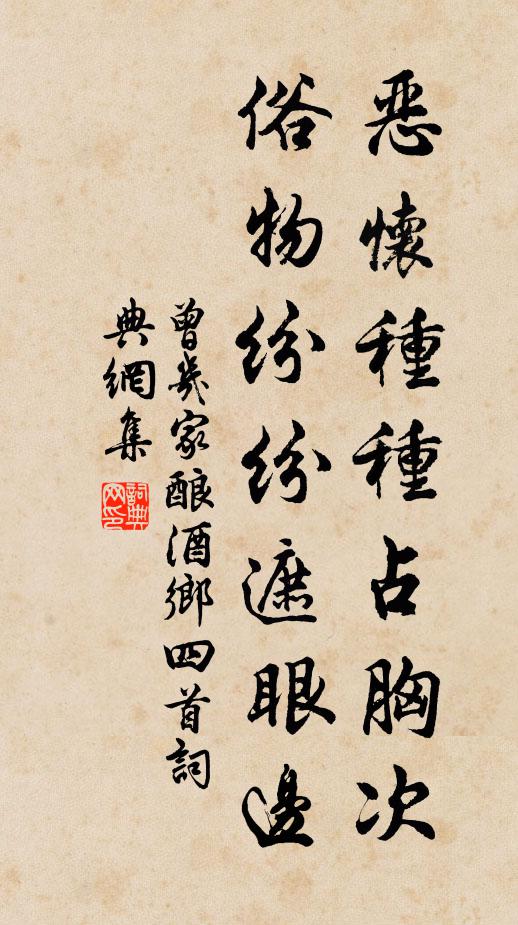 恶懷種種占胸次
俗物紛紛遮眼邊
曾幾家酿酒鄉四首詞
典網集
詞典
网印